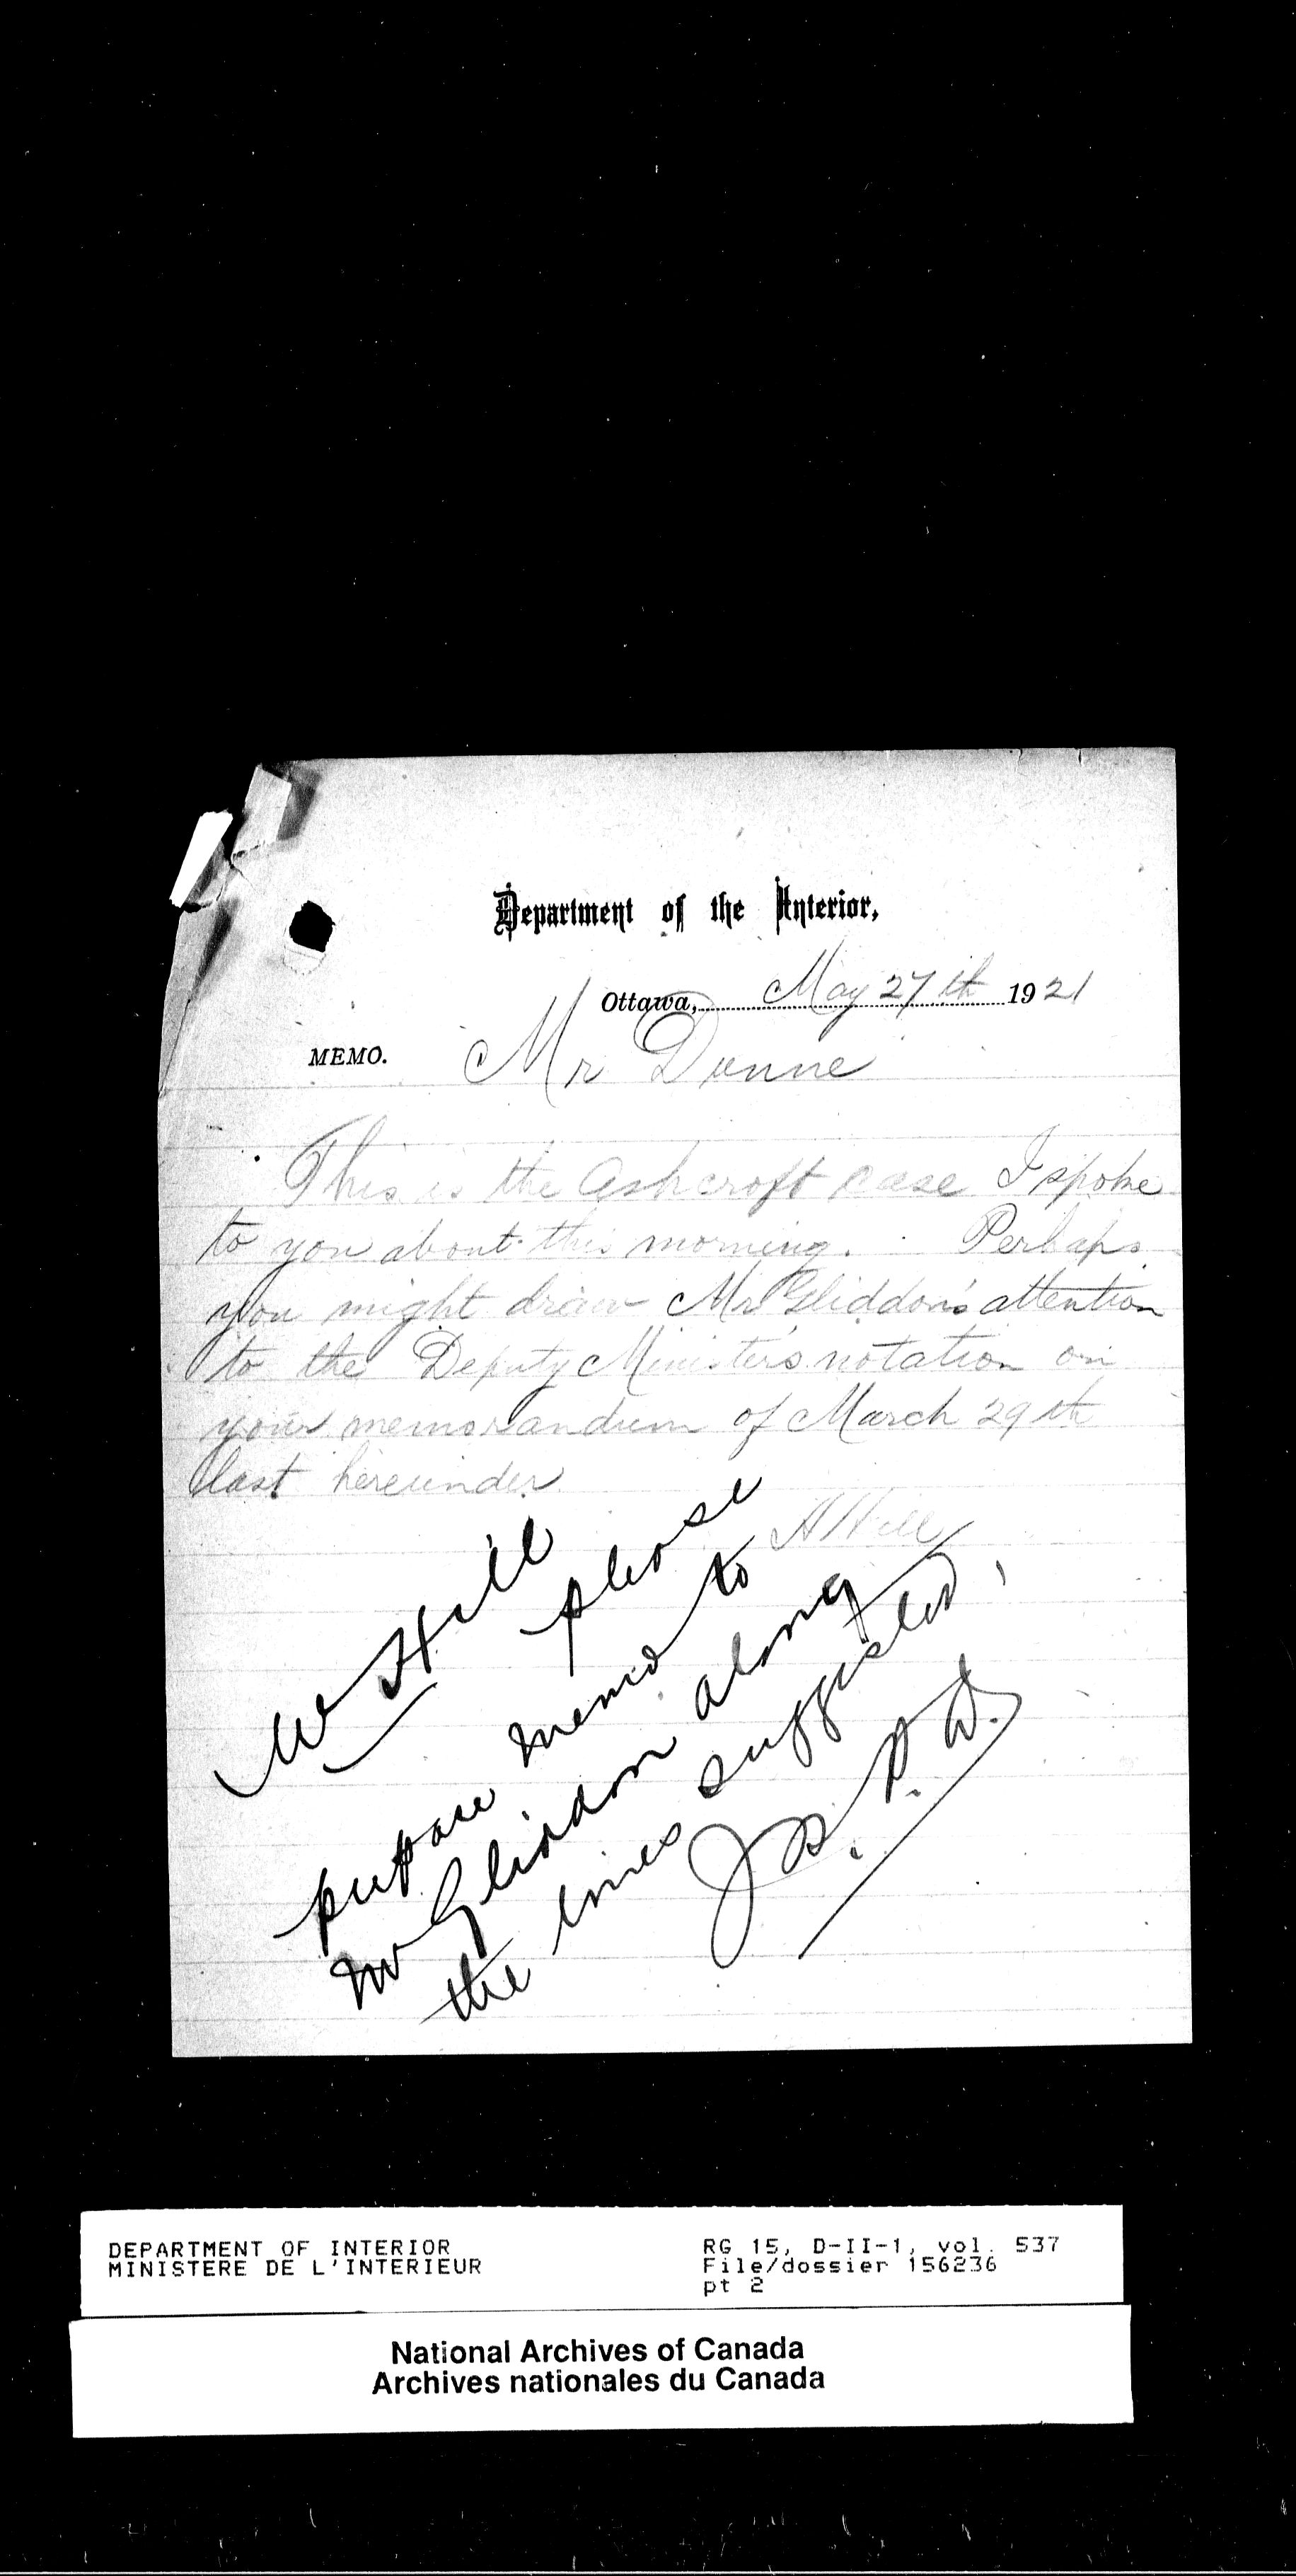 Department of the Interior,
Ottawa, May 27th 1921
MEMO. Mr Dunne
This is the Ashcroft case I spoke
to you about this morning. Perhaps
you might draw Mr Gliddon's attention
to the Deputy Minister's notation on
your memorandum of March 29th
last hereunder
A Hill
Mr Hill
please
prepare memo to
Mr Gliddon along
the lines suggested.
J.D.
DEPARTMENT OF INTERIOR
MINISTERE DE L'INTERIEUR
RG 15, D-II-1, vol. 537
File/dossier 156236
pt 2
National Archives of Canada
Archives nationales du Canada